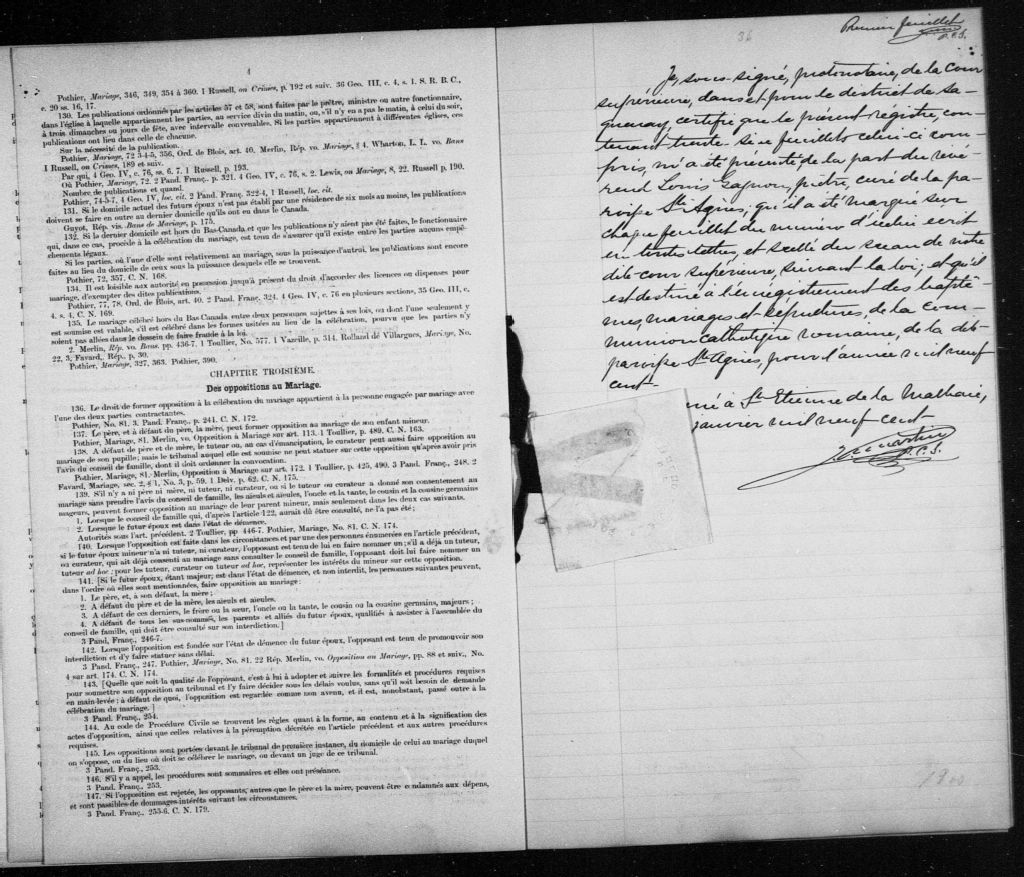 4
Pothier, Mariage, 346, 349, 354 à 360. 1 Russell, on Crimes, p. 192 et suiv. 36 Geo. III, c. 4, s. 1. S. R. B. C.,
c. 20 ss. 16, 17.
130. Les publications ordonnés par les articles 57 et 58, sont faites par le prêtre, ministre ou autre fonctionnaire,
dans l'église à laquelle appartiennent les parties, au service divin du matin, ou, s'il n'y en a pas le matin, à celui du soir,
à trois dimanches ou jours de fête, avec intervalle convenables. Si les parties appartiennent à différentes églises, ces
publications ont lieu dans celle de chacune.
Sur la nécessité de la publication.
Pothier, Mariage, 72 3-4-5, 356, Ord. de Blois, art. 40, Merlin, Rép. vo. Mariage, § 4. Wharton, L. L. vo. Bans
1 Russell, on Crimes, 189 et suiv.
Par qui, 4 Geo. IV, c. 76, ss. 6, 7. 1 Russell, p. 193.
Où Pothier, Mariage, 72. 2 Pand. Franç. p. 321. 4 Geo. IV, c. 76, s. 2. Lewis, on Mariage, s, 22. Russell p. 190.
Nombre de publications et quand.
Pothier, 74-5-7, 4 Geo. IV, loc. cit. 2 Pand. Franç. 322-4, 1 Russell, loc. cit.
131. Si le domicile actuel des futurs époux n'est pas établi par une résidence de six mois au moins, les publications
doivent se faire en outre au dernier domicile qu'ils ont eu dans le Canada.
Guyot, Rép. vis. Bans de Mariage, p. 175.
132. Si la dernier domicile est hors du Bas-Canada, et que les publications n'y aient pas été faites, le fonctionnaire
qui, dans ce cas, procède à la célébration du mariage, est tenu de s'assurer qu'il existe entre les parties aucuns empê-
chements légaux.
Si les parties, où l'une d'elle sont relativement au mariage, sous la puissance d'autrui, les publications sont encore
faites au lieu du domicile de ceux sous la puissance desquels elle se trouvent.
Pothier, 72, 357. C. N. 168.
134. Il est loisible aux autorité en possession jusqu'à présent du droit d'accorder des licences ou dispenses pour
mariage, d'exempter des dites publications.
Pothier, 77, 78. Ord. de Blois, art. 40. 2 Pand. Franç. 324. 4 Geo. IV, c. 76 en plusieurs sections, 35 Geo. III, c.
4, s. 4, C. N. 169.
135. Le mariage célébré hors du Bas Canada entre deux personnes sujettes à ses lois, ou dont l'une seulement y
est soumise est valable, s'il est célébré dans les formes usitées au lieu de la célébration, pourvu que les parties n'y
soient pas allées dans le dessein de faire fraude à la loi.
2. Merlin, Rép. vo. Bans. pp. 436-7. 1 Toullier, No. 577. 1 Vazeille, p. 314. Rolland dé Villargues, Mariage, No.
22, 3, Favard, Rép., p. 30.
Pothier, Mariage, 327, 363. Pothier, 390.
CHAPITRE TROISIÈME.
Des oppositions au Mariage.
136. Le droit de former opposition à la célébration du mariage appartient à la personne engagée par mariage avec
l'une des deux parties contractantes.
Pothier, No. 81. 3. Pand. Franç. p. 241. C. N. 172.
137. Le père, et à défaut du père, la mère, peut former opposition au mariage de son enfant mineur.
Pothier, Mariage, 81. Merlin, vo. Opposition à Mariage sur art. 113. 1 Toullier, p. 489. C. N. 163.
138. A défaut de père et de mère, le tuteur ou, au cas d'émancipation, le curateur peut aussi faire opposition au
mariage de son pupille; mais le tribunal auquel elle est soumise ne peut statuer sur cette opposition qu'après avoir pris
l'avis du conseil de famille, dont il doit ordonner la convention.
Pothier, Mariage, 81. Merlin, Opposition à Mariage sur art. 172. 1 Toullier, p. 425, 490. 3 Pand. Franç., 248. 2
Favard, Mariage, sec. 2, § 1, No. 3, p. 59. 1 Delv. p. 62. C. N. 175.
139. S'il n'y a ni père ni mère, ni tuteur, ni curateur, ou si le tuteur ou curateur a donné son consentement au
mariage sans prendre l'avis du conseil de famille, les aïeuls et aïeules, l'oncle et la tante, le cousin et la cousine germains
majeurs, peuvent former opposition au mariage de leur parent mineur, mais seulement dans les deux cas suivants.
1. Lorsque le conseil de famille qui, d'après l'article 122, aurait dû être consulté, ne l'a pas été;
2. Lorsque le futur époux est dans l'état de démence.
Autorités sous l'art. précédent. 2 Toullier, pp 446-7. Pothier, Mariage, No. 81. C. N. 174.
140. Lorsque l'opposition est faite dans les circonstances et par une des personnes énumérées en l'article précédent,
si le futur époux mineur n'a ni tuteur, ni curateur, l'opposant est tenu de lui en faire nommer un; s'il a déjà un tuteur,
ou curateur, qui ait déjà consenti au mariage sans consulter le conseil de famille, l'opposant doit lui faire nommer un
tuteur ad hoc: pour les tuteur, curateur ou tuteur ad hoc, représenter les intérêts du mineur sur cette opposition.
141. [Si le futur époux, étant majeur, est dans l'état de démence, et non interdit, les personnes suivantes peuvent,
dans l'ordre où elles sont mentionnées, faire opposition au mariage:
1. Le père, et, à son défaut, la mère;
2. A défaut du père et de la mère, les aïeuls et aïeules.
3. A défaut de ces derniers, le frère ou la sœur, l'oncle ou la tante, le cousin ou la cousine germains, majeurs;
4. A défaut de tous les sus-nommés, les parents et alliés du futur époux, qualifiés à assister à l'assemblée du
conseil de famille, qui doit être consulté sur son interdiction.]
3 Pand, Franç., 246-7.
142. Lorsque l'opposition est fondée sur l'état de démence du futur époux, l'opposant est tenu de promouvoir son
interdiction et d'y faire statuer sans délai.
3 Pand. Franç., 247. Pothier, Mariage, No. 81. 22 Rép. Merlin, vo. Opposition au Mariage, pp. 88 et suiv., No.
4 sur art. 174. C. N. 174.
143. [Quelle que soit la qualité de l'opposant, c'est à lui à adopter et suivre les formalités et procédures requises
pour soumettre son opposition au tribunal et l'y faire décider sous les délais voulus, sans qu'il soit besoin de demande
en main-levée; à défaut de quoi, l'opposition est regardée comme non avenue, et il est, nonobstant, passé outre à la
célébration du mariage.]
3 Pand. Franç., 254.
144. Au code de Procédure Civile se trouvent les règles quant à la forme, au contenu et à la signification des
actes d'opposition, ainsi que celles relatives à la péremption décrétée en l'article précédent et aux autres procédures
requises.
145. Les oppositions sont portées devant le tribunal de première instance, du domicile de celui au mariage duquel
on s'oppose, ou du lieu où doit se célébrer le mariage, ou devant un juge de ce tribunal.
3 Pand. Franç., 253.
146. S'il y a appel, les procédures sont sommaires et elles ont préséance.
3 Pand. Franç., 253.
147. Si l'opposition est rejetée, les opposants, autres que le père et la mère, peuvent être condamnés aux dépens,
et sont passibles de dommages-intérêts suivant les circonstances.
3 Pand. Franç., 255-6. C. N. 179.
36
Premier feuillet
P.C.S.
Je, sous-signé, protonotaire, de la Cour
supérieure, dans et pour le district de Sa-
guenay certifie que le présent registre, con-
tenant trente-six feuillets celui-ci com-
pris, m'a été présenté de la part du révé-
rend Louis Gagnon, prêtre, curé de la pa-
roisse St. Agnès; qu'il a été marqué sur
chaque feuillet du numéro d'icelui écrit
en toutes lettres, et scellé du sceau de notre
dite cour supérieure, suivant la loi; et qu'il
est destiné à l'enrégistrement des baptê-
mes, mariages et sépultures, de la com-
munion catholique romaine, de la dite
paroisse St. Agnès, pour l'année mil neuf
cent.
né à St. Etienne de la Malbaie,
janvier mil neuf cent
P.C.S.
1900